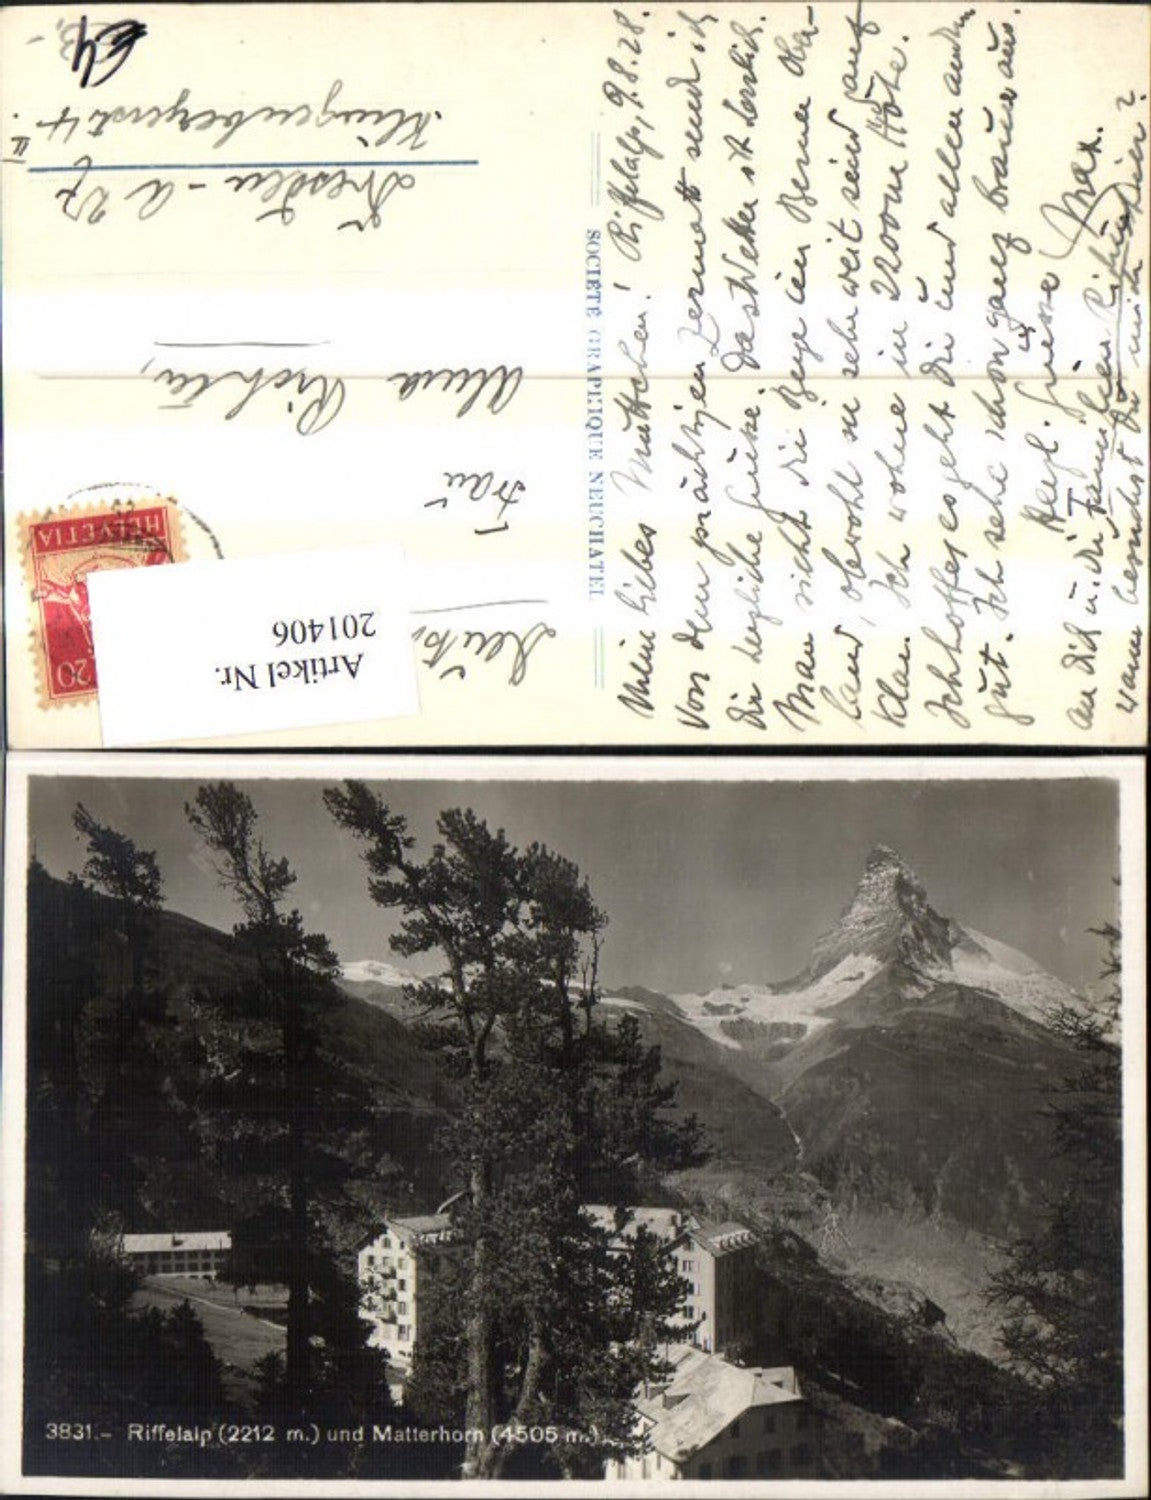 Mein liebes Muttchen! Riffelalp, 9.8.28.
Von dem prächtigen Zermatt send ich
Dir herzliche Grüsse. Das Wetter ist herrlich.
Man sieht die Berge im Berner Ober-
land, obwohl sie sehr weit sind auf
klar. Ich wohne in 2200 m Höhe.
Ich hoffe, es geht Dir und allen andern
gut. Ich sehe schon ganz braun aus.
Herzl. Grüsse Max.
an Dich u. die Familien
wann besuchst Du mich hier?
SOCIÉTÉ GRAPHIQUE NEUCHATEL
Frau
Alma Richter,
Dresden - A 27
Klingenbergerstr 4 II.
HELVETIA
20
Artikel Nr.
201406
3831.- Riffelalp (2212 m.) und Matterhorn (4505 m.)